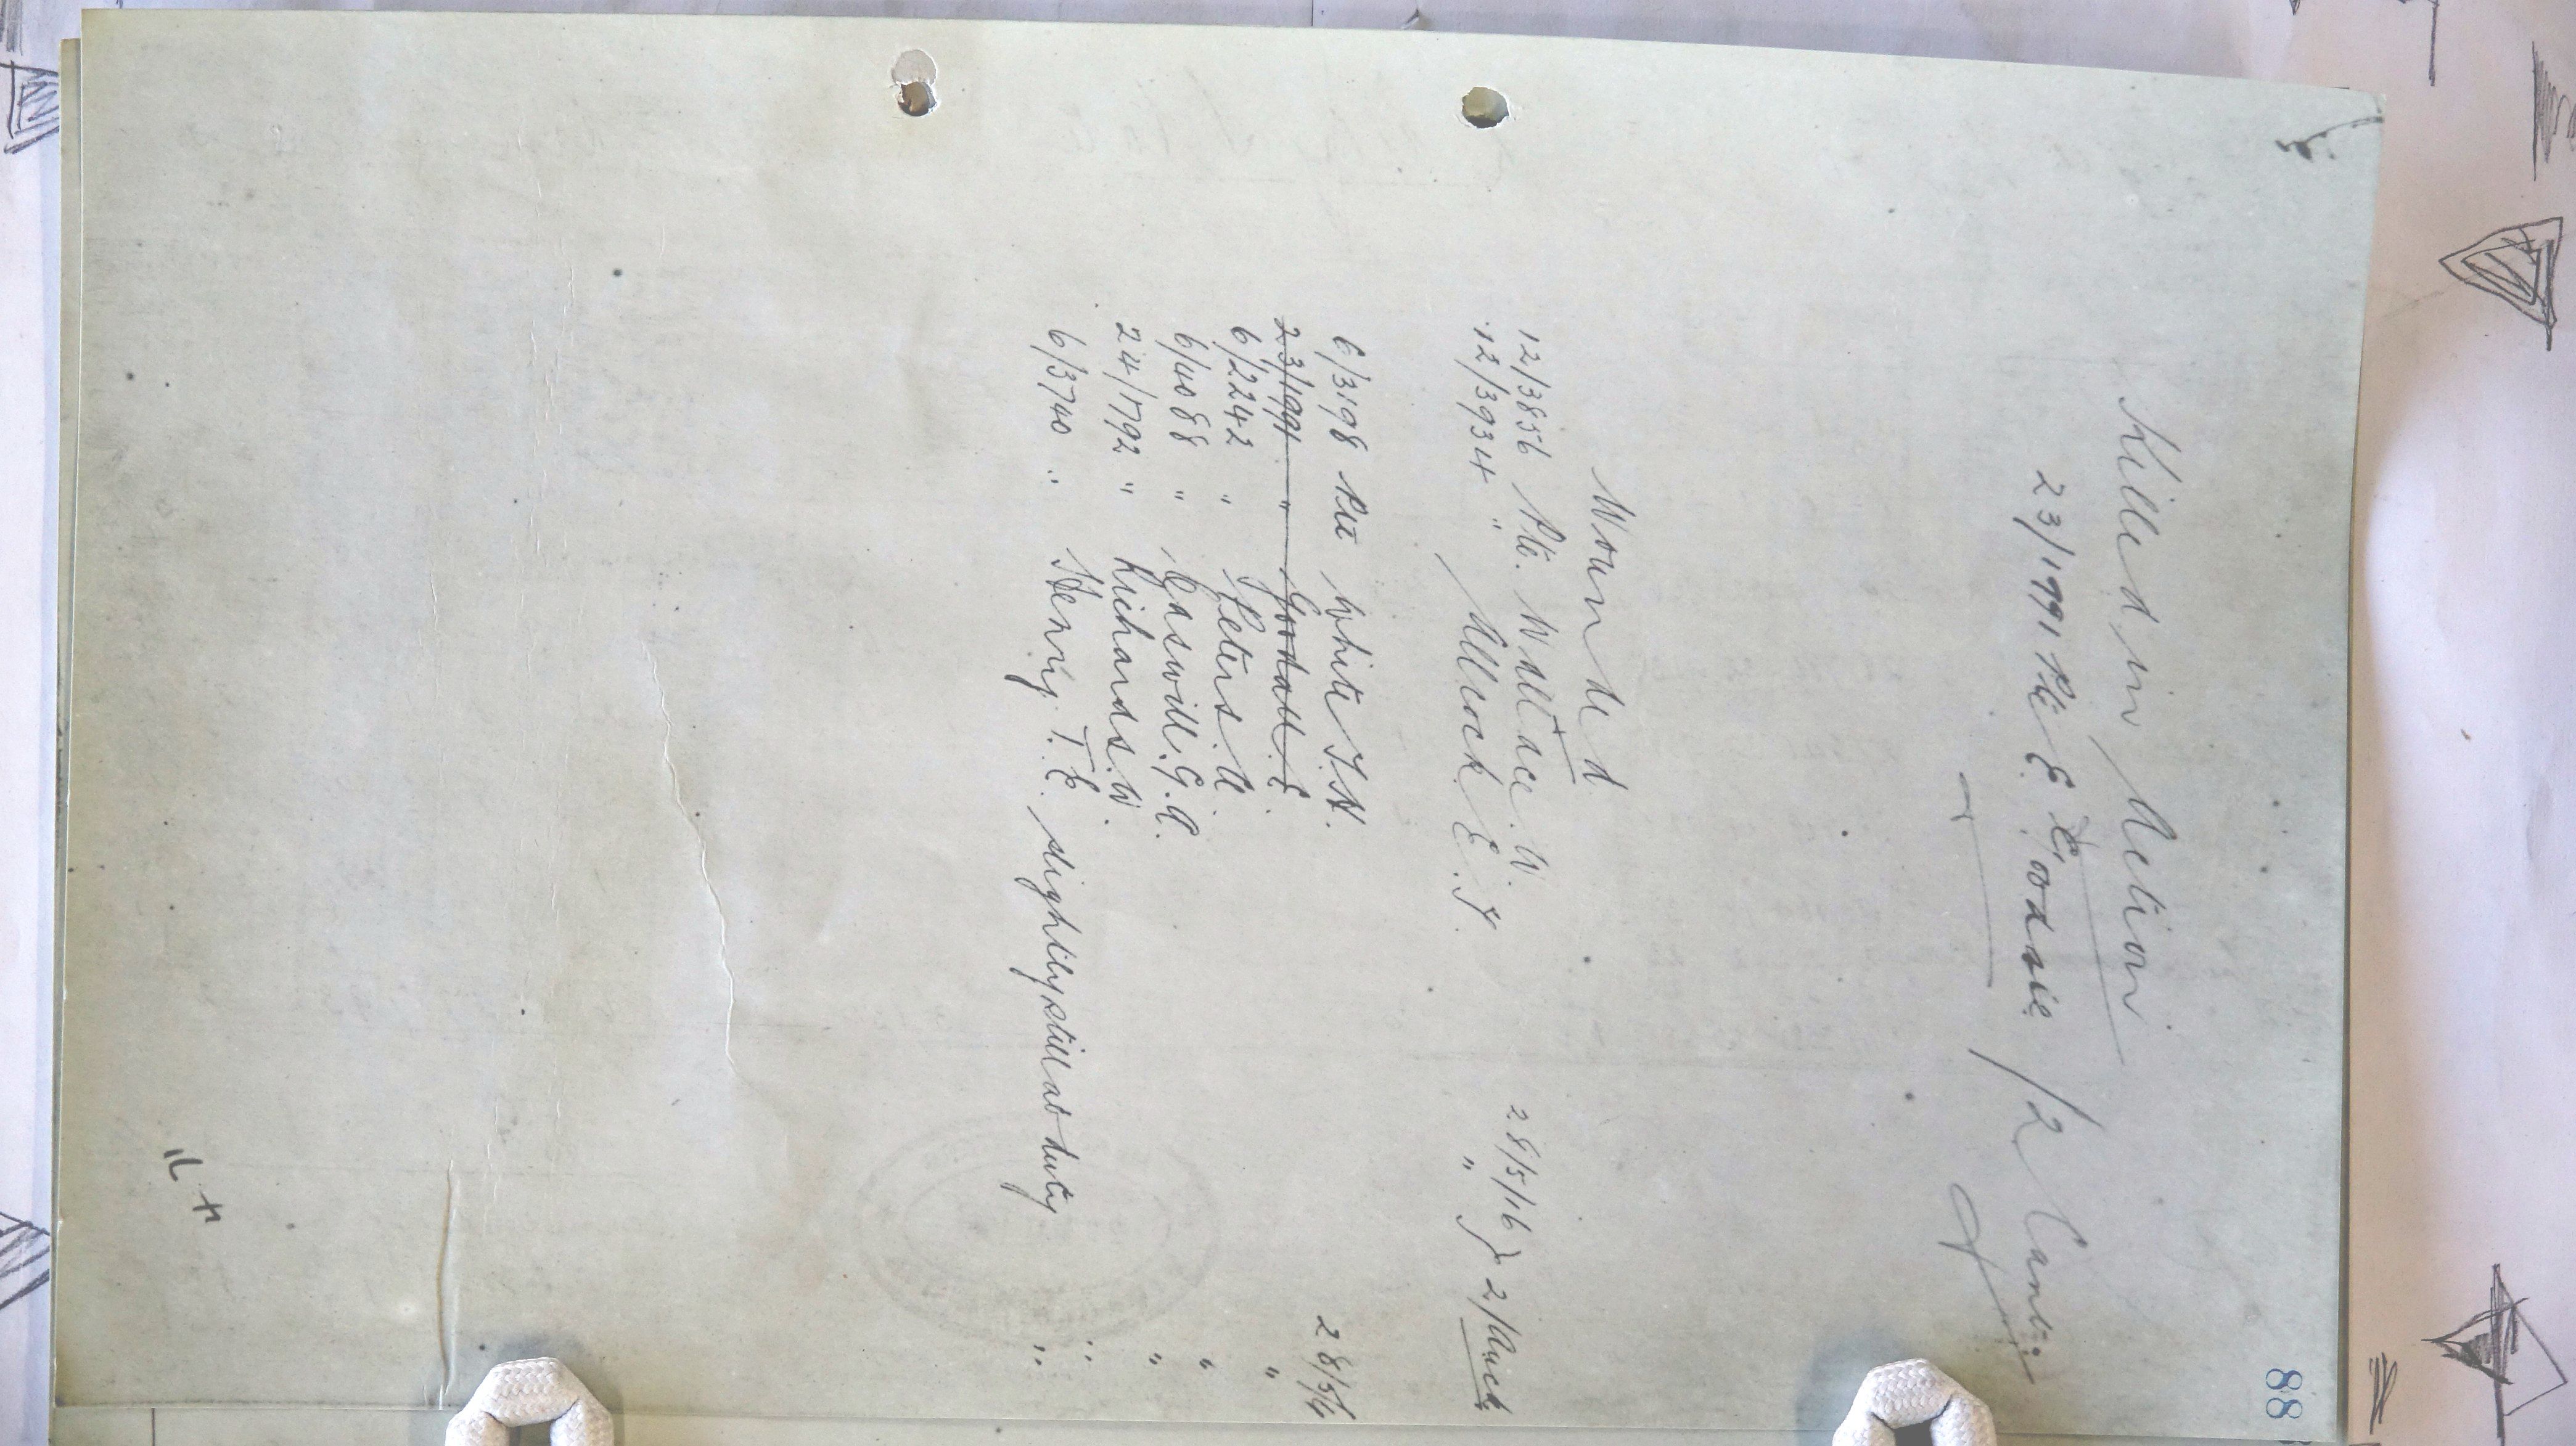 88
Killed in Action
23/1991 Pte E. Goodsir /2 Canty
Wounded
12/3856 Pte. Wallace. W. 28/5/16 } 2/Auck
12/3934 " Allsock E. J. "
6/3198 Pte White J. H. 28/5/16
23/1991 " Goodall E. "
6/2242 " Peters. A. "
6/4088 " Caswill. G. A. "
24/1792 " Richards. W. "
6/3740 " Henry. T. E. slightly still at duty "